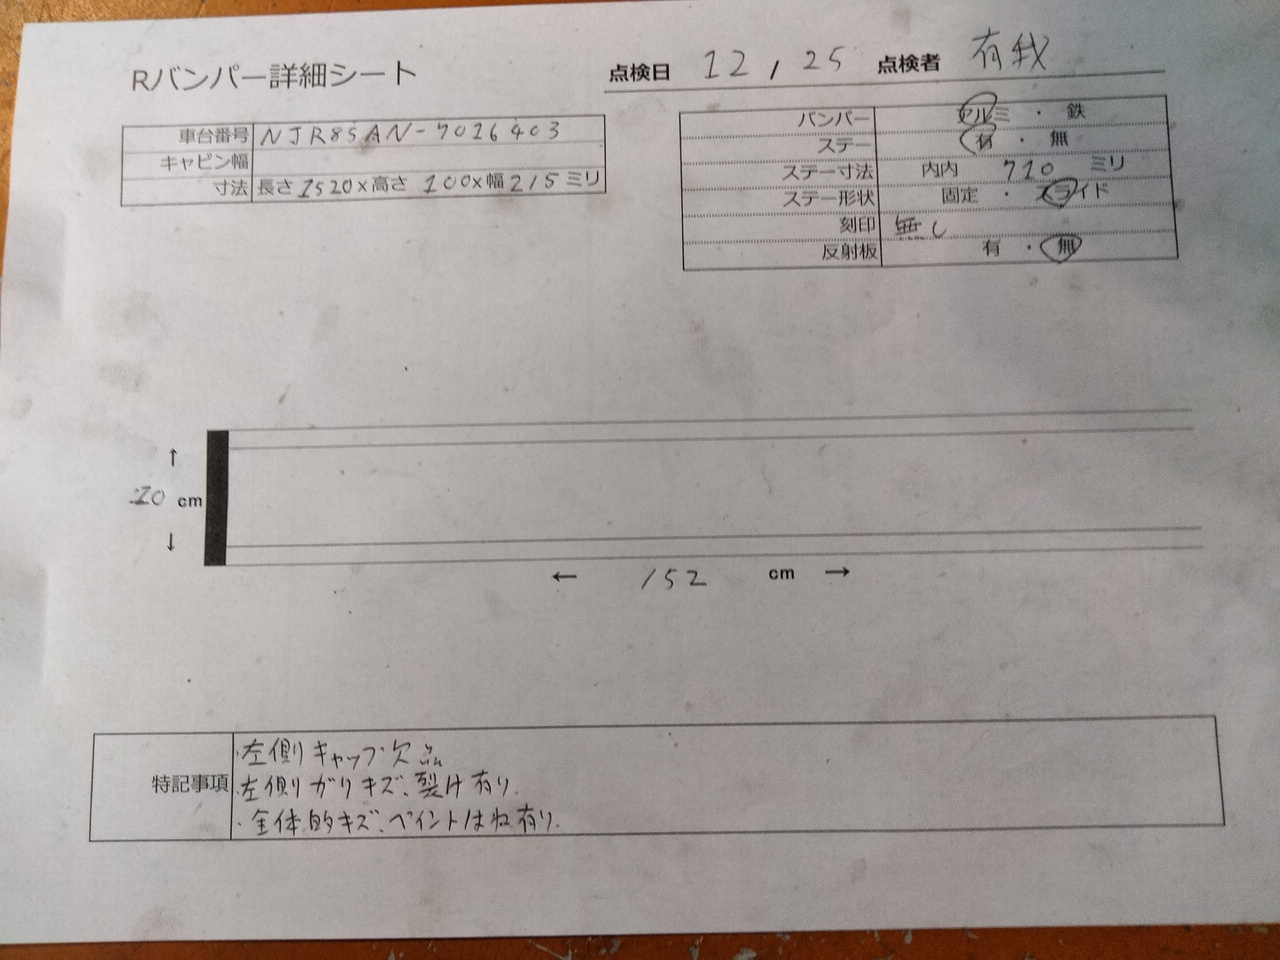 Rバンパー詳細シート
点検日 12 , 25 点検者 有我
車台番号 NJR85AN-7026403
キャビン幅
寸法 長さ 1520×高さ 100×幅 215 ミリ
バンパー アルミ ・ 鉄
ステー 有 ・ 無
ステー寸法 内内 710 ミリ
ステー形状 固定 ・ スライド
刻印 無し
反射板 有 ・ 無
↑
10 cm
↓
← 152 cm →
特記事項
・左側キャップ欠品
・左側ガリキズ、裂け有り.
・全体的キズ、ペイントはね有り.